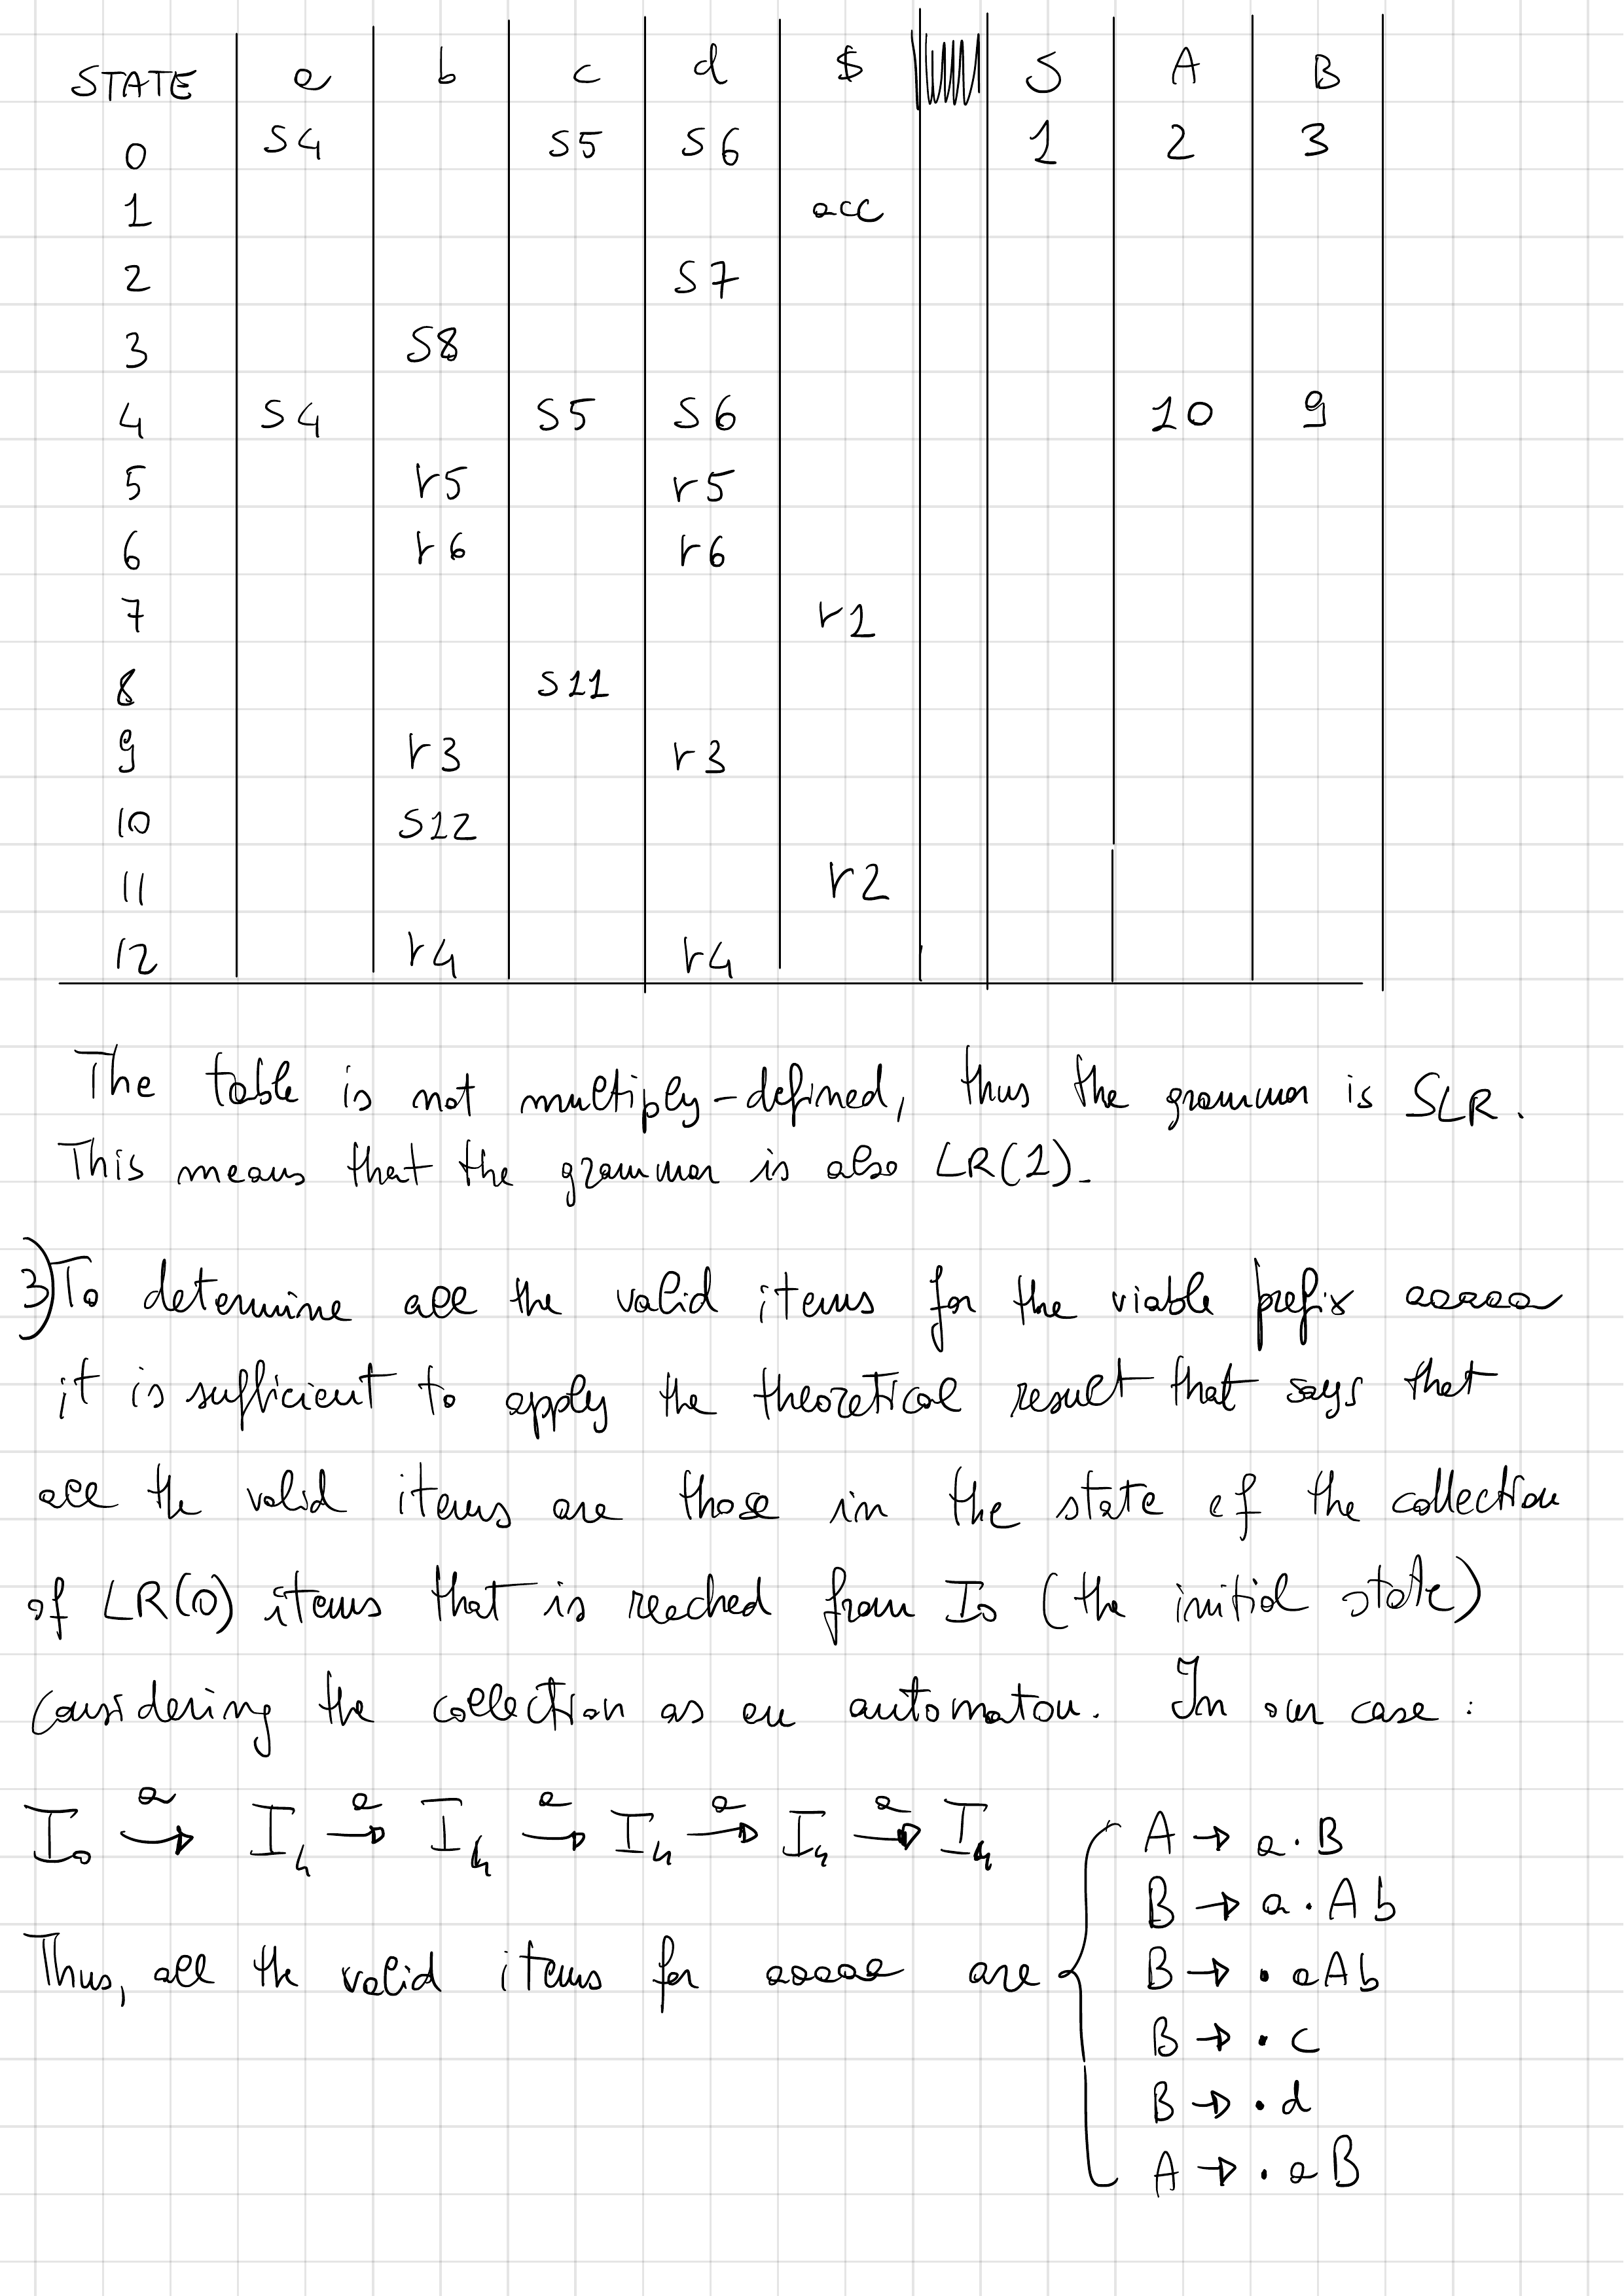 STATE a b c d $ S A B
0 S4 S5 S6 1 2 3
1 acc
2 S7
3 S8
4 S4 S5 S6 10 9
5 r5 r5
6 r6 r6
7 r1
8 S11
9 r3 r3
10 S12
11 r2
12 r4 r4
The table is not multiply-defined, thus the grammar is SLR.
This means that the grammar is also LR(1).
3) To determine all the valid items for the viable prefix aaaaa
it is sufficient to apply the theoretical result that says that
all the valid items are those in the state of the collection
of LR(0) items that is reached from I0 (the initial state)
considering the collection as an automaton. In our case:
I0 →a I4 →a I4 →a I4 →a I4 →a I4
Thus, all the valid items for aaaaa are
A → a·B
B → a·Ab
B → ·aAb
B → ·c
B → ·d
A → ·aB